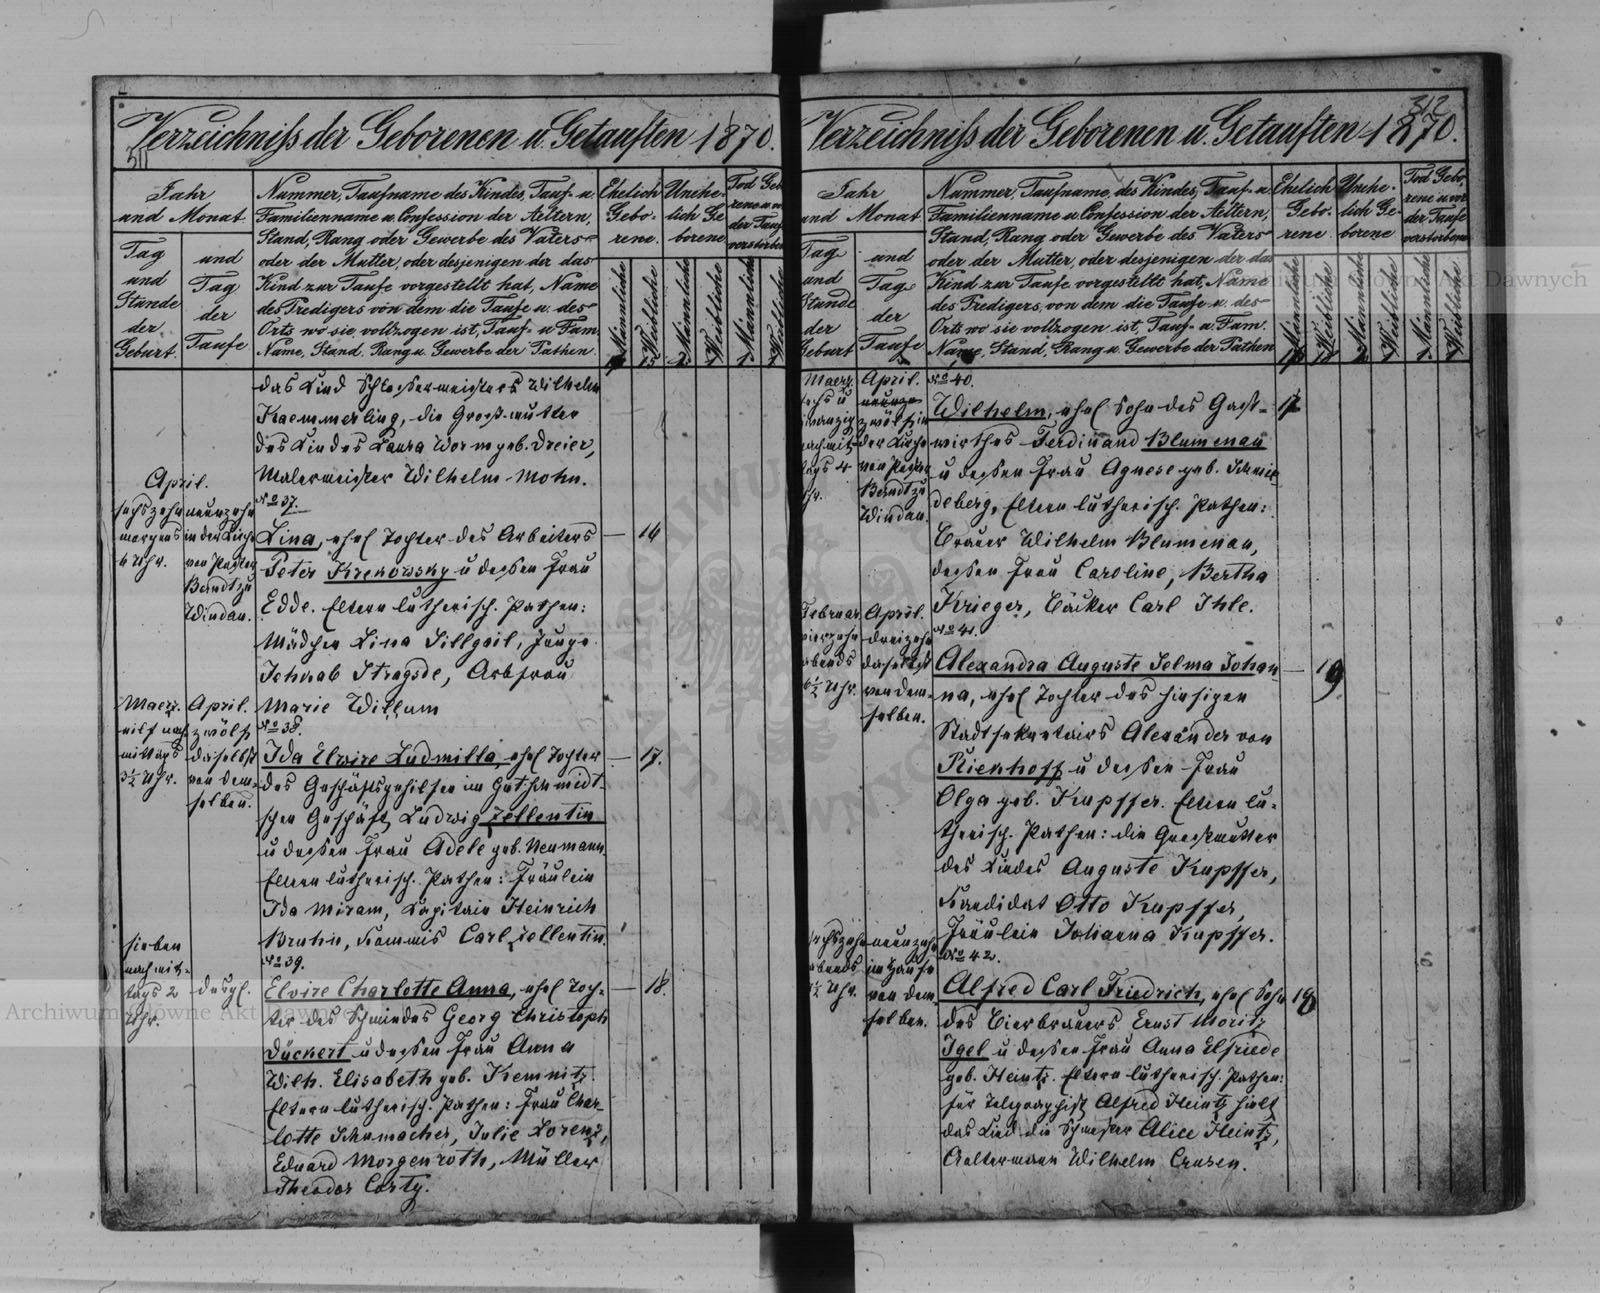 Verzeichniss der Geborenen u. Getauften 1870.
311
Jahr
und Monat
Tag
und
Stunde
der
Geburt.
und
Tag
der
Taufe
Nummer, Taufname des Kindes, Tauf- u.
Familienname u. Confession der Aeltern,
Stand, Rang oder Gewerbe des Vaters
oder der Mutter, oder desjenigen der das
Kind zur Taufe vorgestellt hat, Name
des Predigers von dem die Taufe u. des
Orts wo sie vollzogen ist, Tauf- u. Fam.
Name, Stand, Rang u. Gewerbe der Pathen.
Ehelich
Gebo-
rene.
Unehe-
lich Ge
borene
Tod Geb
rene u. vor
der Taufe
verstorben
Männliche
Weibliche
Männliche
Weibliche
Männliche
Weibliche
das Kind Schlossermeisters Wilhelm
Kaemmerling, die Grossmutter
des Kindes Laura Worm geb. Dreier,
Malermeister Wilhelm Mohn.
April.
sechszehn
morgens
6 Uhr.
neunzehn
in der Kirche
von Pastor
Berndt zu
Windau.
No 37.
Lina, ehel Tochter des Arbeiters
Peter Krekowsky u dessen Frau
Edde. Eltern lutherisch. Pathen:
Mädchen Lina Sillgail, Junge
Jehkab Stragsde, Arbfrau
Marie Willum
— 16
Maerz.
eilf nach
mittags
3½ Uhr.
April.
zwölf
daselbst
von dem-
selben.
No 38.
Ida Elvire Ludmilla, ehel Tochter
des Geschäftsgehilfen im Gutschmidt-
schen Geschäft Ludwig Zellentin
u dessen Frau Adele geb. Neumann.
Eltern lutherisch. Pathen: Fräulein
Ida Miram, Kapitain Heinrich
Bruhn, Kommis Carl Zellentin.
— 17.
sieben
nachmit-
tags 2
Uhr.
desgl.
No 39.
Elvire Charlotte Anna, ehel Toch-
ter des Schmiedes Georg Christoph
Dückert u dessen Frau Anna
Wilh. Elisabeth geb. Kemnitz.
Eltern lutherisch. Pathen: Frau Char-
lotte Schumacher, Julie Lorenz,
Eduard Morgenroth, Müller
Theodor Corty.
— 18.
Verzeichniss der Geborenen u. Getauften 1870.
312
Jahr
und Monat
Tag
und
Stunde
der
Geburt
und
Tag
der
Taufe
Nummer, Taufname des Kindes, Tauf- u.
Familienname u. Confession der Aeltern,
Stand, Rang oder Gewerbe des Vaters
oder der Mutter, oder desjenigen der das
Kind zur Taufe vorgestellt hat, Name
des Predigers, von dem die Taufe u. des
Orts wo sie vollzogen ist, Tauf- u. Fam.
Name, Stand, Rang u. Gewerbe der Pathen
Ehelich
Gebo-
rene
Unehe-
lich Ge-
borene
Tod Gebo,
rene u. vor
der Taufe
verstorbene
Männliche
Weibliche
Männliche
Weibliche
Männliche
Weibliche
Maerz.
sechs u
zwanzig
nachmit-
tags 4
Uhr.
April.
zwölf in
der Kirche
von Pastor
Berndt zu
Windau.
No 40.
Wilhelm, ehel Sohn des Gast-
wirthes Ferdinand Blumenau
u dessen Frau Agnese geb. Schmie
deberg, Eltern lutherisch. Pathen:
Brauer Wilhelm Blumenau,
dessen Frau Caroline, Bertha
Krieger, Bäcker Carl Ihle.
17
Februar
vierzehn
abends
6½ Uhr.
April.
dreizehn
daselbst
von dem-
selben.
No 41.
Alexandra Auguste Selma Johan
na, ehel Tochter des hiesigen
Stadtsekretairs Alexander von
Riekhoff u dessen Frau
Olga geb. Kupffer. Eltern lu-
therisch. Pathen: die Grossmutter
des Kindes Auguste Kupffer,
Kandidat Otto Kupffer,
Fräulein Johanna Kupffer.
— 19
sechszehn
abends
½ Uhr.
neunzehn
im Hause
von dem-
selben.
No 42.
Alfred Carl Friedrich, ehel Sohn
des Bierbrauers Ernst Moritz
Igel u dessen Frau Anna Elfriede
geb. Heintz. Eltern lutherisch. Pathen:
für Telegraphist Alfred Heintz hielt
das Kind die Schwester Alice Heintz,
Aeltermann Wilhelm Crusen.
18
Archiwum Główne Akt Dawnych